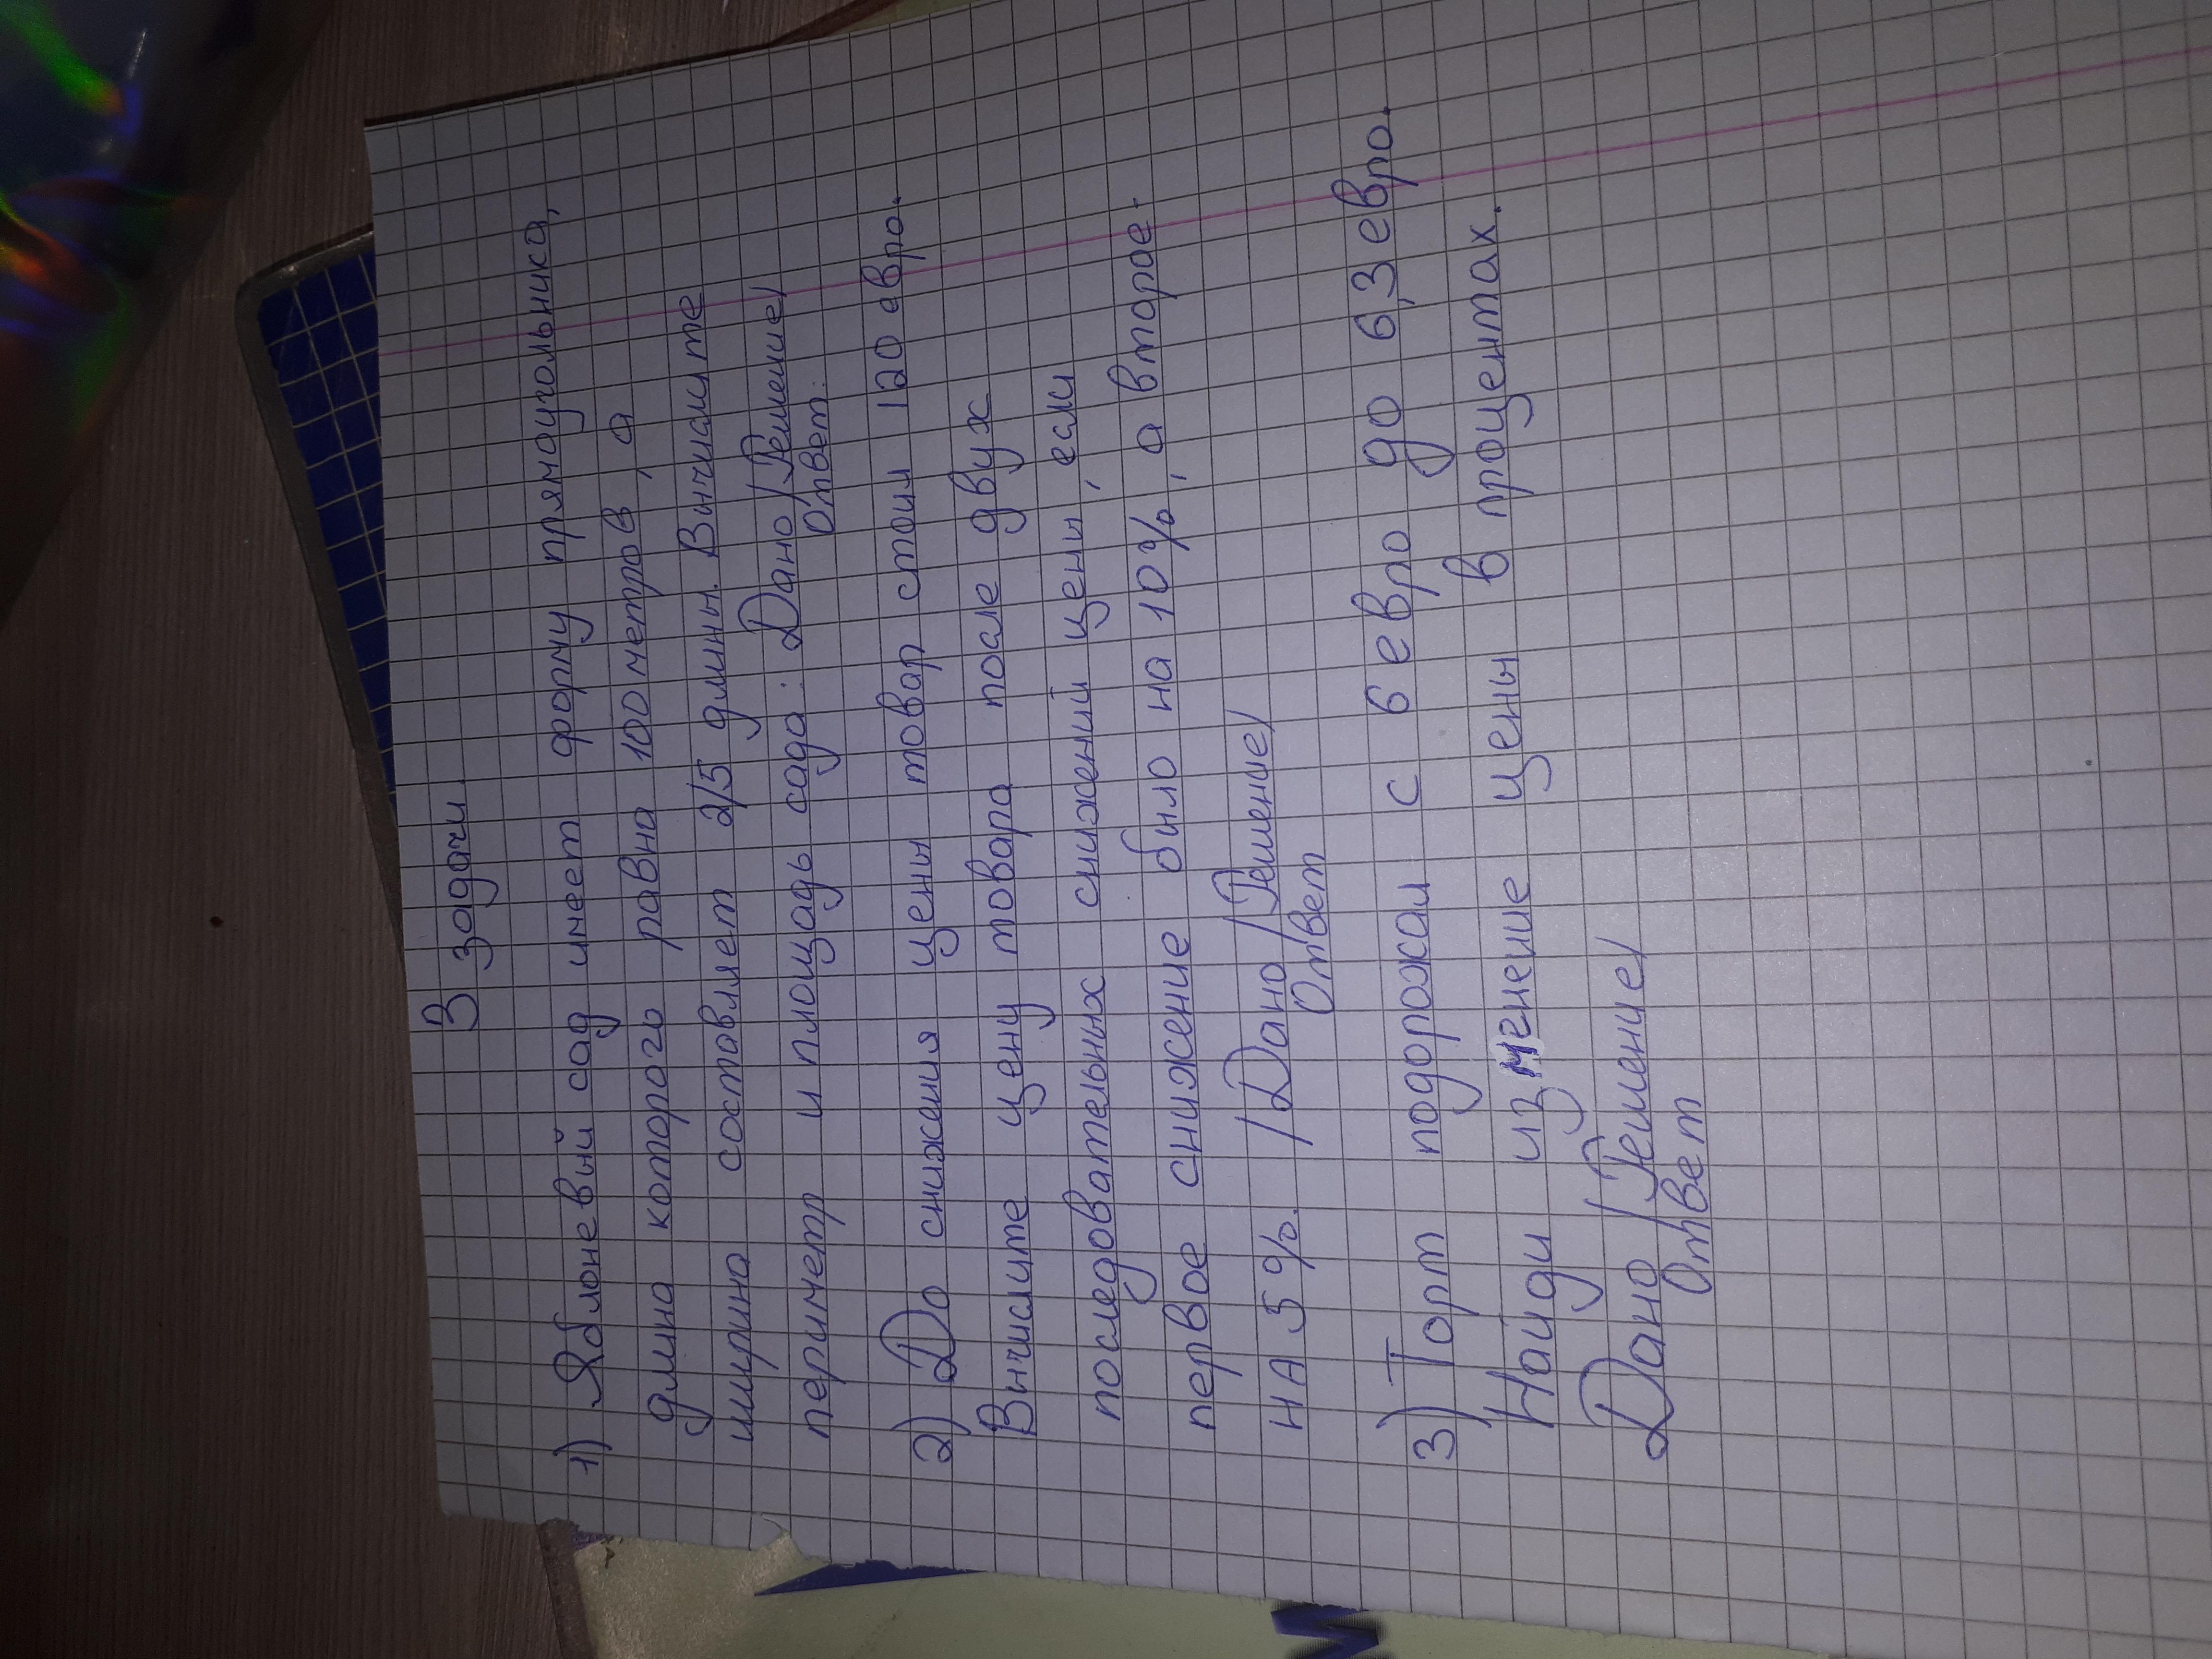 3 задачи.
1) Яблоневый сад имеет форму прямоугольника,
длина которого равна 100 метров, а
ширина составляет 2/5 длины. Вычислите
периметр и площадь сада: Дано /Решение/
Ответ:
2) До снижения цены товар стоил 120 евро.
Вычислите цену товара после двух
последовательных снижений цены, если
первое снижение было на 10%, а второе-
на 5%. /Дано /Решение/
Ответ
3) Торт подорожал с 6 евро до 6,3 евро.
Найди изменение цены в процентах.
Дано /Решение/
Ответ